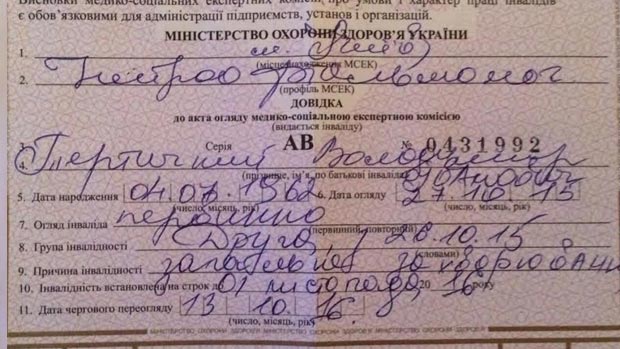 Висновки медико-соціальних експертних комісій про умови і характер праці інвалідів
є обов'язковими для адміністрації підприємств, установ і організацій.
МІНІСТЕРСТВО ОХОРОНИ ЗДОРОВ'Я УКРАЇНИ
1. м. Київ
(місцезнаходження МСЕК)
2.
(профіль МСЕК)
ДОВІДКА
до акта огляду медико-соціальною експертною комісією
(видається інваліду)
3. Серія АВ № 0431992
4. Володимир
(прізвище, ім'я, по батькові інваліда)
5. Дата народження 04.07.1962 6. Дата огляду 27.10.15
(число, місяць, рік) (число, місяць, рік)
7. Огляд інваліда первинно
(первинний, повторний)
8. Група інвалідності Друга, 28.10.15
(словами)
9. Причина інвалідності загальне захворювання
10. Інвалідність встановлена на строк до 01 листопада 2016 року
11. Дата чергового переогляду 13.10.16.
(число, місяць, рік)
МІНІСТЕРСТВО ОХОРОНИ ЗДОРОВ'Я УКРАЇНИ